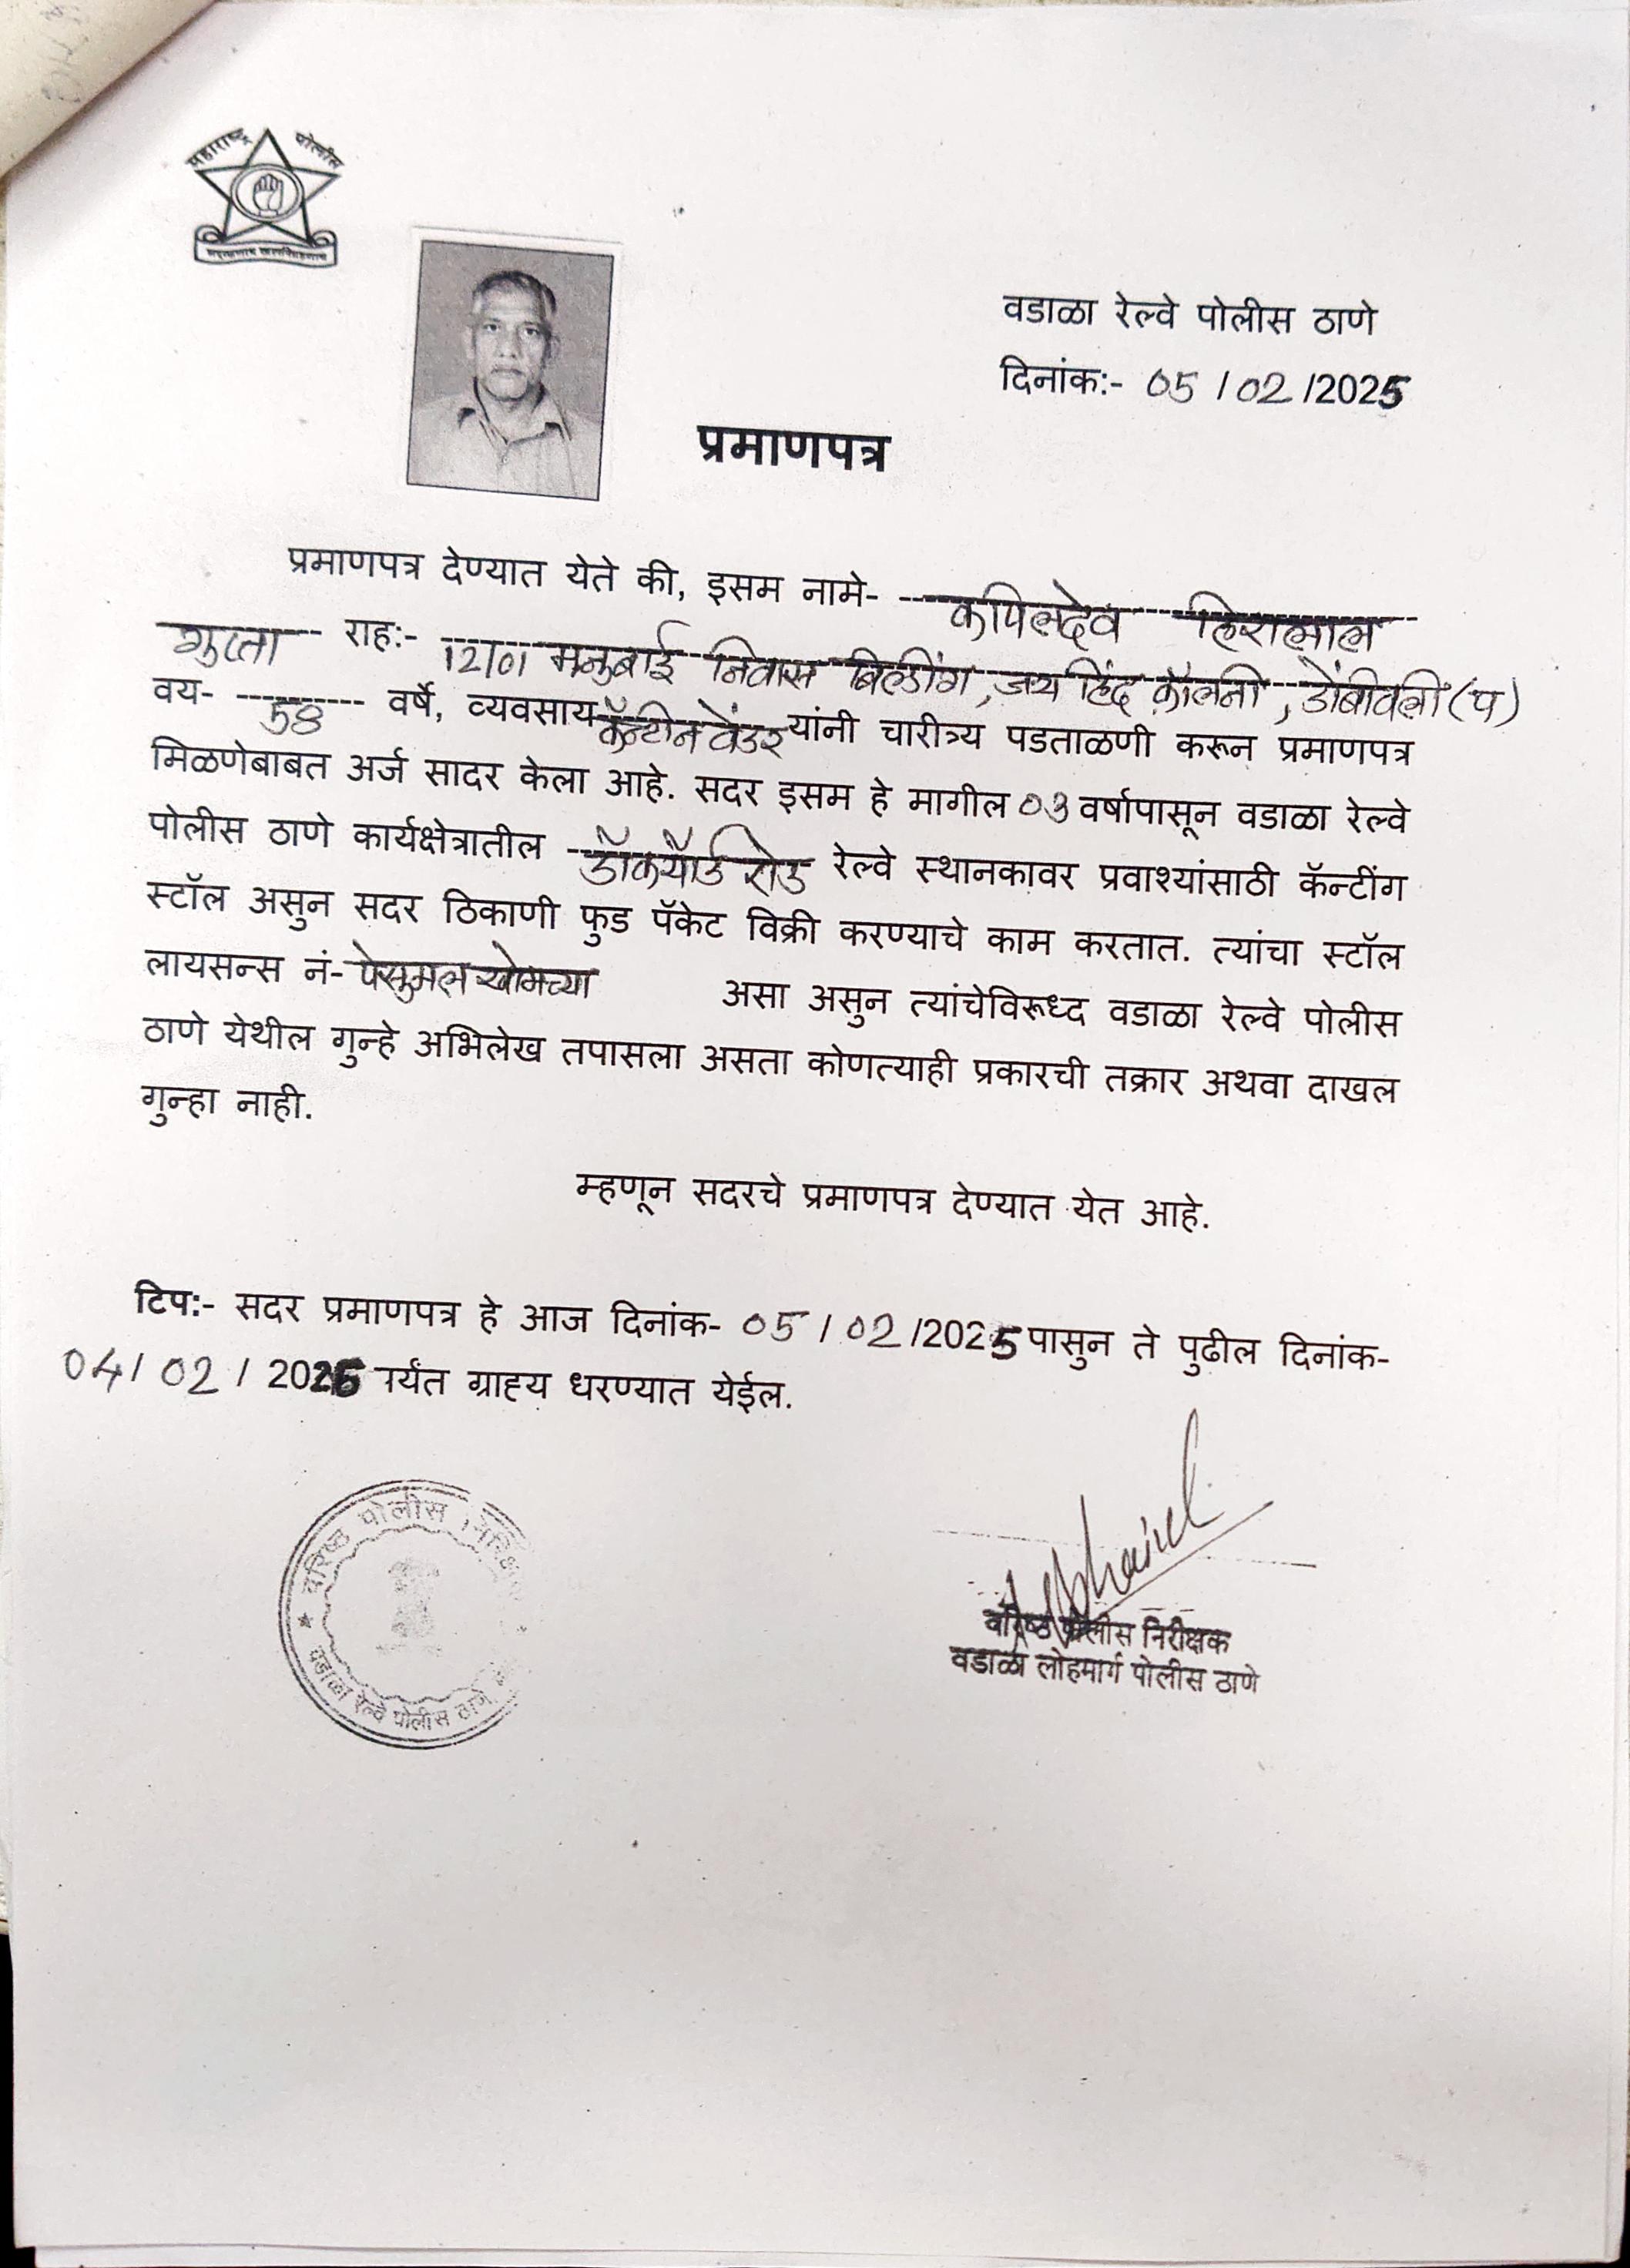 महाराष्ट्र पोलीस
वडाळा रेल्वे पोलीस ठाणे
दिनांक:- 05 / 02 /2025
प्रमाणपत्र
प्रमाणपत्र देण्यात येते की, इसम नामे- कपिलदेव हिरालाल
गुप्ता राह:- 12/01 मनुबाई निवास बिल्डींग, जय हिंद कॉलनी, डोंबीवली (प)
वय- 58 वर्षे, व्यवसाय कॅन्टीन वेंडर यांनी चारीत्र्य पडताळणी करून प्रमाणपत्र
मिळणेबाबत अर्ज सादर केला आहे. सदर इसम हे मागील 03 वर्षापासून वडाळा रेल्वे
पोलीस ठाणे कार्यक्षेत्रातील डॉकयार्ड रोड रेल्वे स्थानकावर प्रवाश्यांसाठी कॅन्टींग
स्टॉल असुन सदर ठिकाणी फुड पॅकेट विक्री करण्याचे काम करतात. त्यांचा स्टॉल
लायसन्स नं- पेसुमल असा असुन त्यांचेविरूध्द वडाळा रेल्वे पोलीस
ठाणे येथील गुन्हे अभिलेख तपासला असता कोणत्याही प्रकारची तक्रार अथवा दाखल
गुन्हा नाही.
म्हणून सदरचे प्रमाणपत्र देण्यात येत आहे.
टिप:- सदर प्रमाणपत्र हे आज दिनांक- 05 / 02 /2025 पासुन ते पुढील दिनांक-
04 / 02 / 2026 पर्यंत ग्राह्य धरण्यात येईल.
वरिष्ठ पोलीस निरीक्षक
वडाळा रेल्वे पोलीस ठाणे
वरिष्ठ पोलीस निरीक्षक
वडाळा लोहमार्ग पोलीस ठाणे